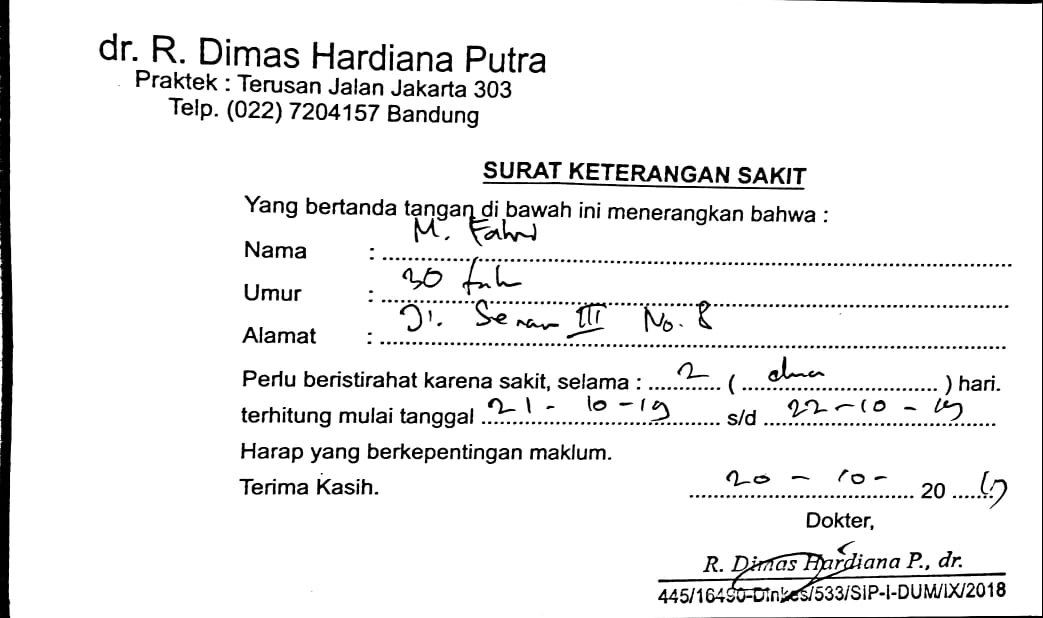 dr. R. Dimas Hardiana Putra
Praktek : Terusan Jalan Jakarta 303
Telp. (022) 7204157 Bandung
SURAT KETERANGAN SAKIT
Yang bertanda tangan di bawah ini menerangkan bahwa :
Nama : M. Fahri
Umur : 30 th
Alamat : Jl. Seram III No. 8
Perlu beristirahat karena sakit, selama : 2 ( dua ) hari.
terhitung mulai tanggal 21 - 10 - 19 s/d 22 - 10 - 19
Harap yang berkepentingan maklum.
Terima Kasih.
20 - 10 - 20 19
Dokter,
R. Dimas Hardiana P., dr.
445/16490-Dinkes/533/SIP-I-DUM/IX/2018